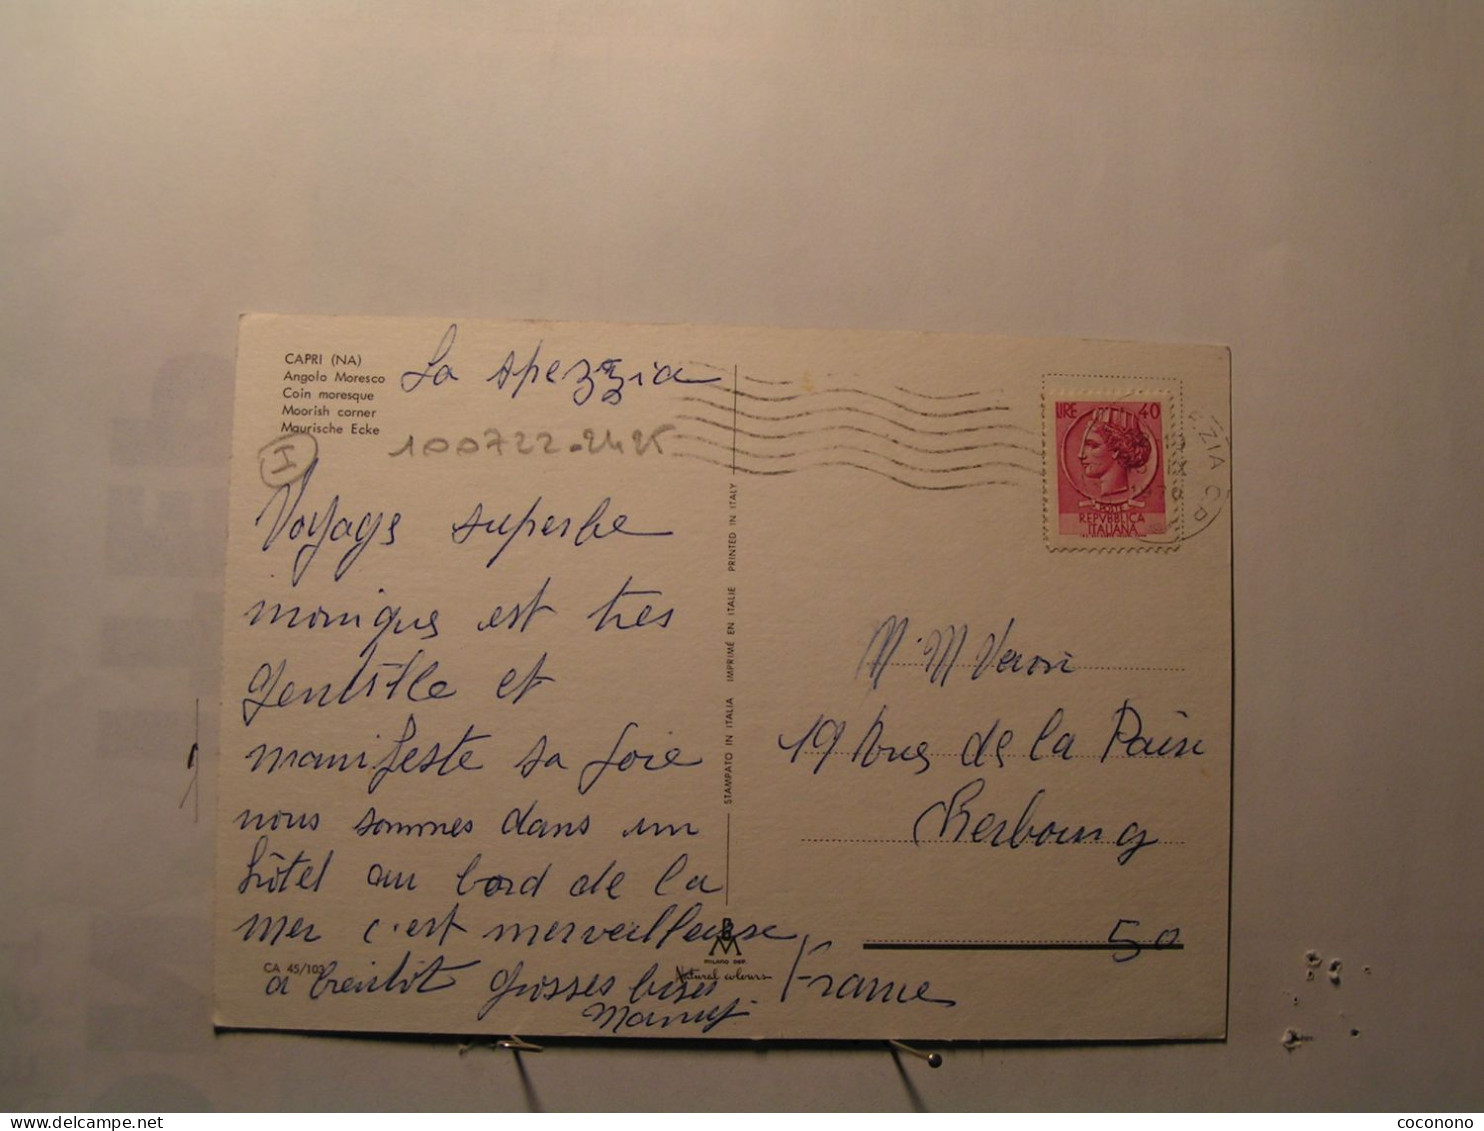 CAPRI (NA)
Angolo Moresco
Coin moresque
Moorish corner
Maurische Ecke
La spezzia
100722-2425
I
Voyage superbe
monique est tres
gentille et
manifeste sa joie
nous sommes dans un
hôtel au bord de la
mer c'est merveilleuse
a bientôt grosses bises
CA 45/103
STAMPATO IN ITALIA IMPRIMÉ EN ITALIE PRINTED IN ITALY
MILANO DEP.
Natural colours
LIRE 40
POSTE
REPVBBLICA
ITALIANA
EZIA C.P.
M. M
19 rue de la Paix
Cherbourg
50
France
coconono